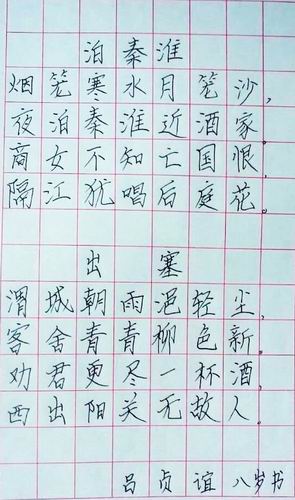 泊秦淮
烟笼寒水月笼沙，
夜泊秦淮近酒家。
商女不知亡国恨，
隔江犹唱后庭花。
出塞
渭城朝雨浥轻尘，
客舍青青柳色新。
劝君更尽一杯酒，
西出阳关无故人。
吕贞谊 八岁书